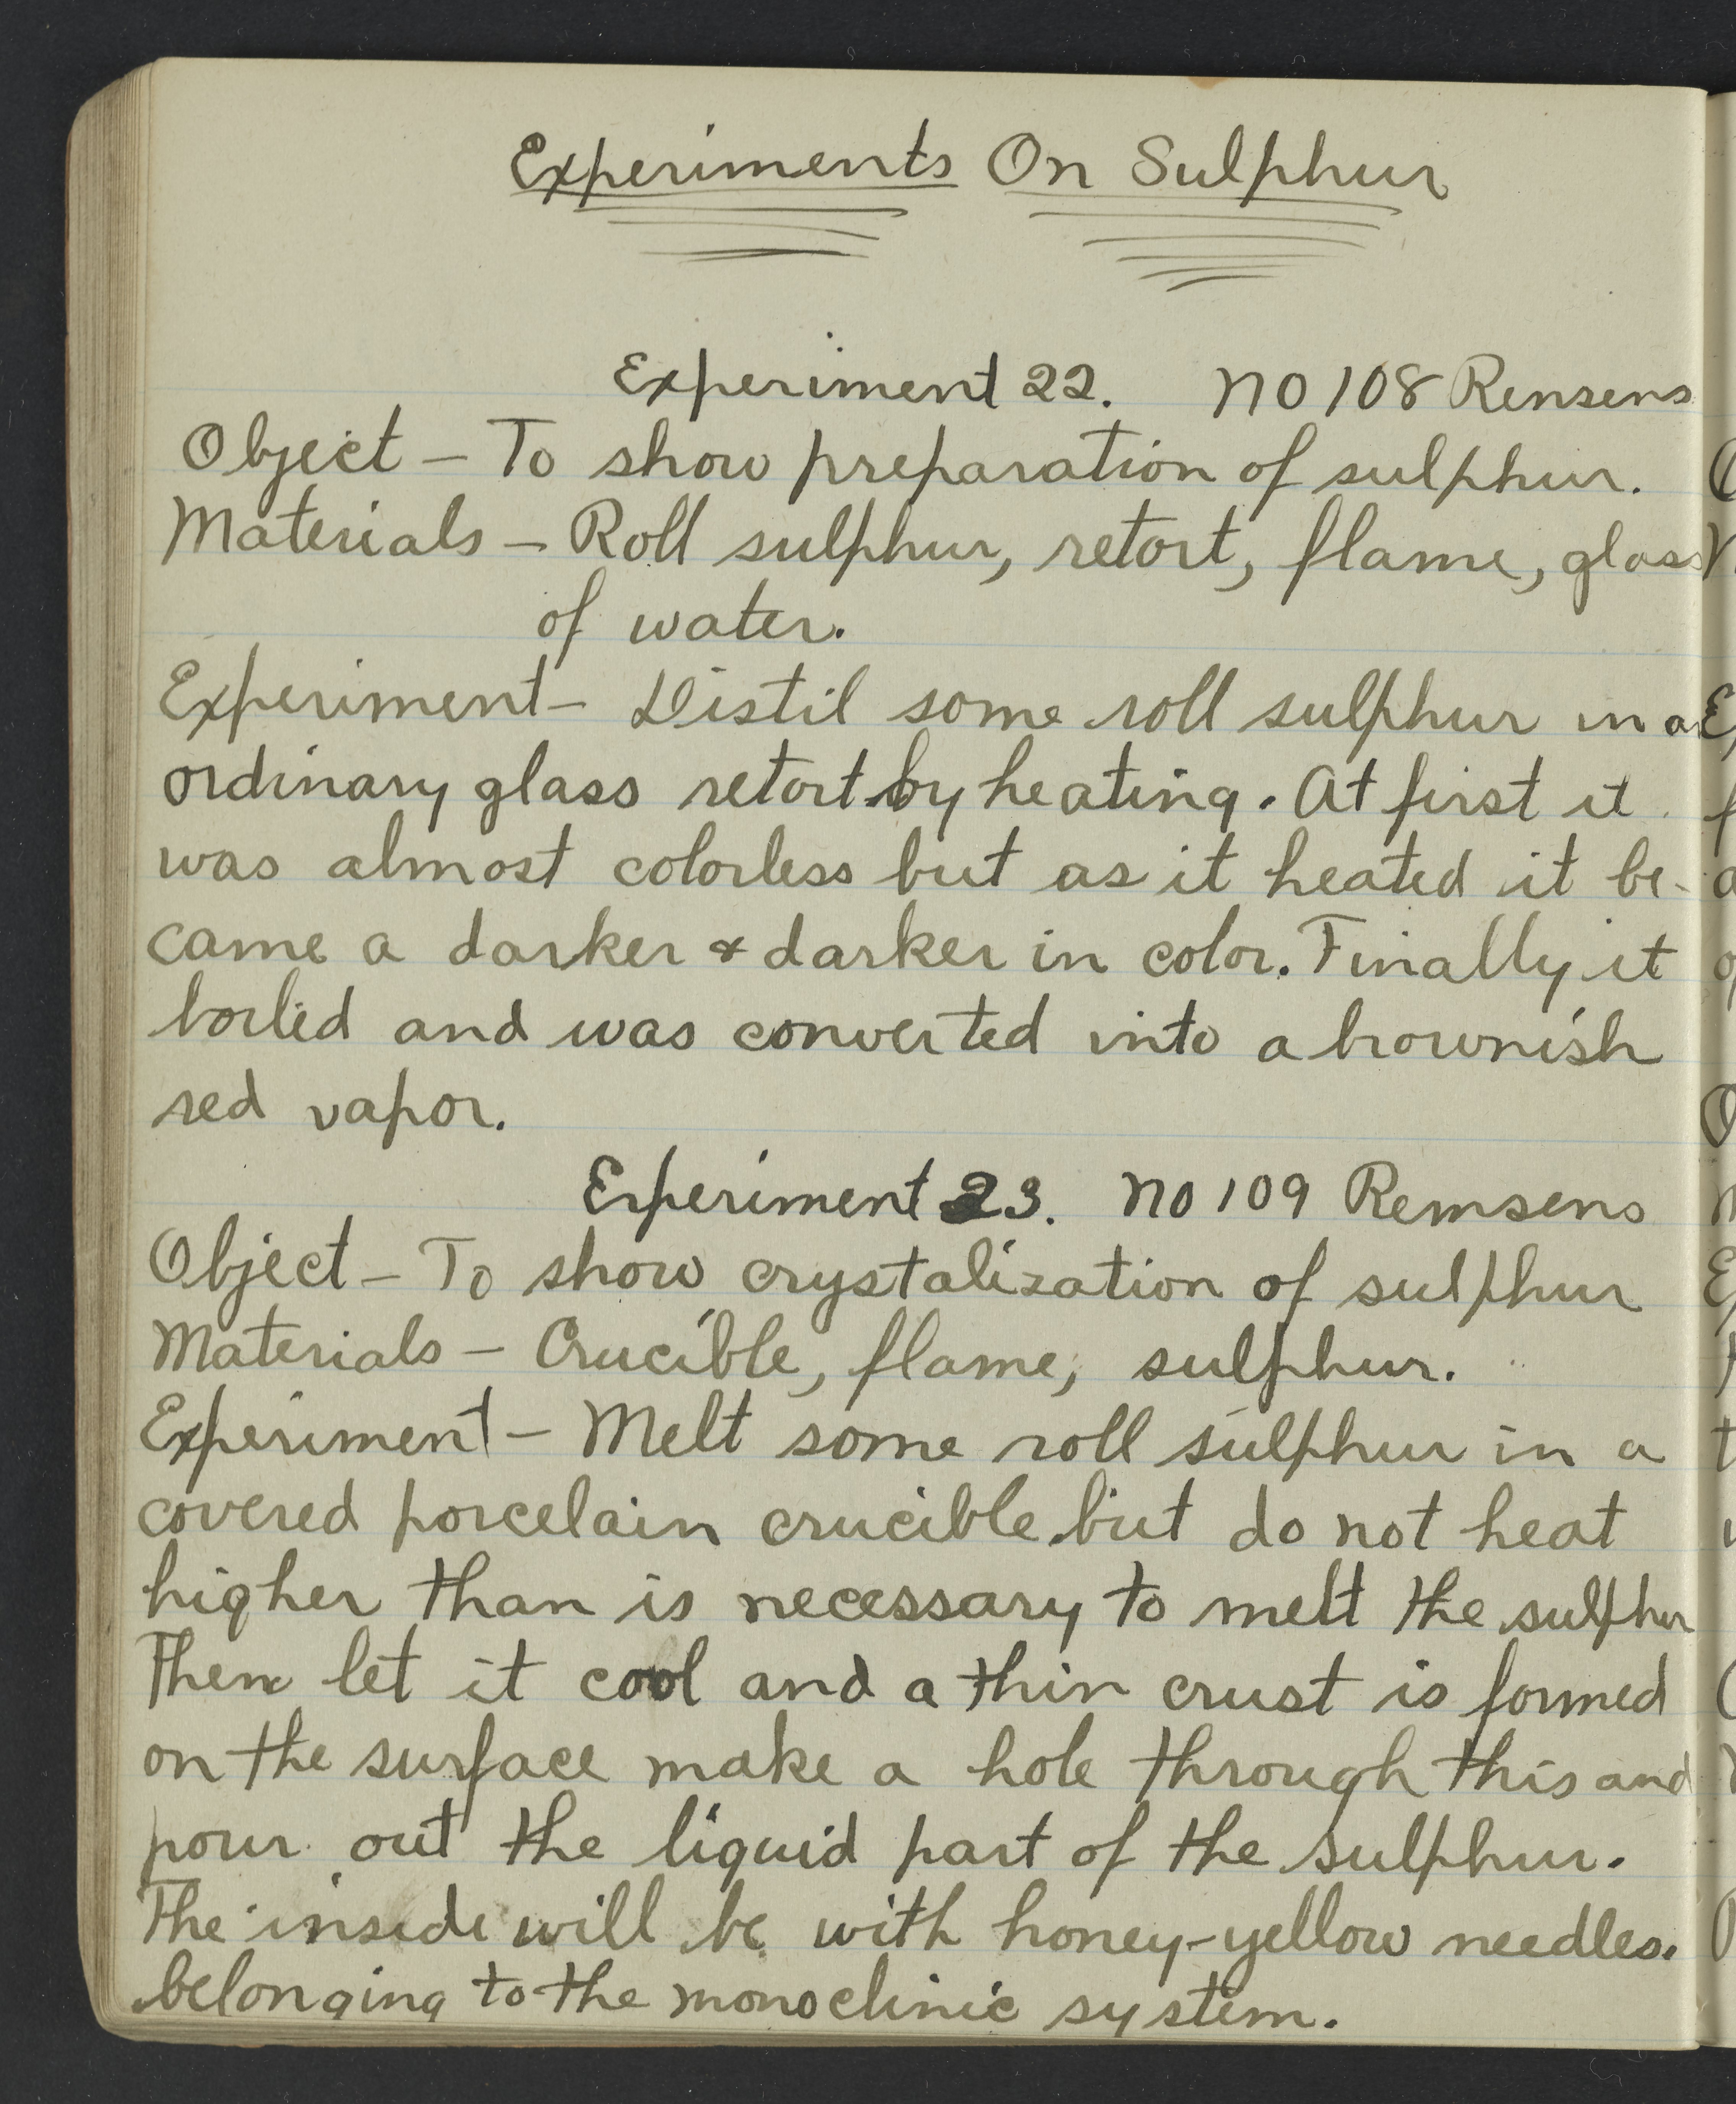 Experiments On Sulphur
Experiment 22. No 108 Remsens
Object - To show preparation of sulphur.
Materials - Roll sulphur, retort, flame, glass
of water.
Experiment - Distil some roll sulphur in an
ordinary glass retort by heating. At first it
was almost colorless but as it heated it be-
came a darker & darker in color. Finally it
boiled and was converted into a brownish
red vapor.
Experiment 23. No 109 Remsens
Object - To show crystalization of sulphur
Materials - Crucible, flame, sulphur.
Experiment - Melt some roll sulphur in a
covered porcelain crucible but do not heat
higher than is necessary to melt the sulphur
Then let it cool and a thin crust is formed
on the surface make a hole through this and
pour out the liquid part of the sulphur.
The inside will be with honey-yellow needles.
belonging to the monoclinic system.